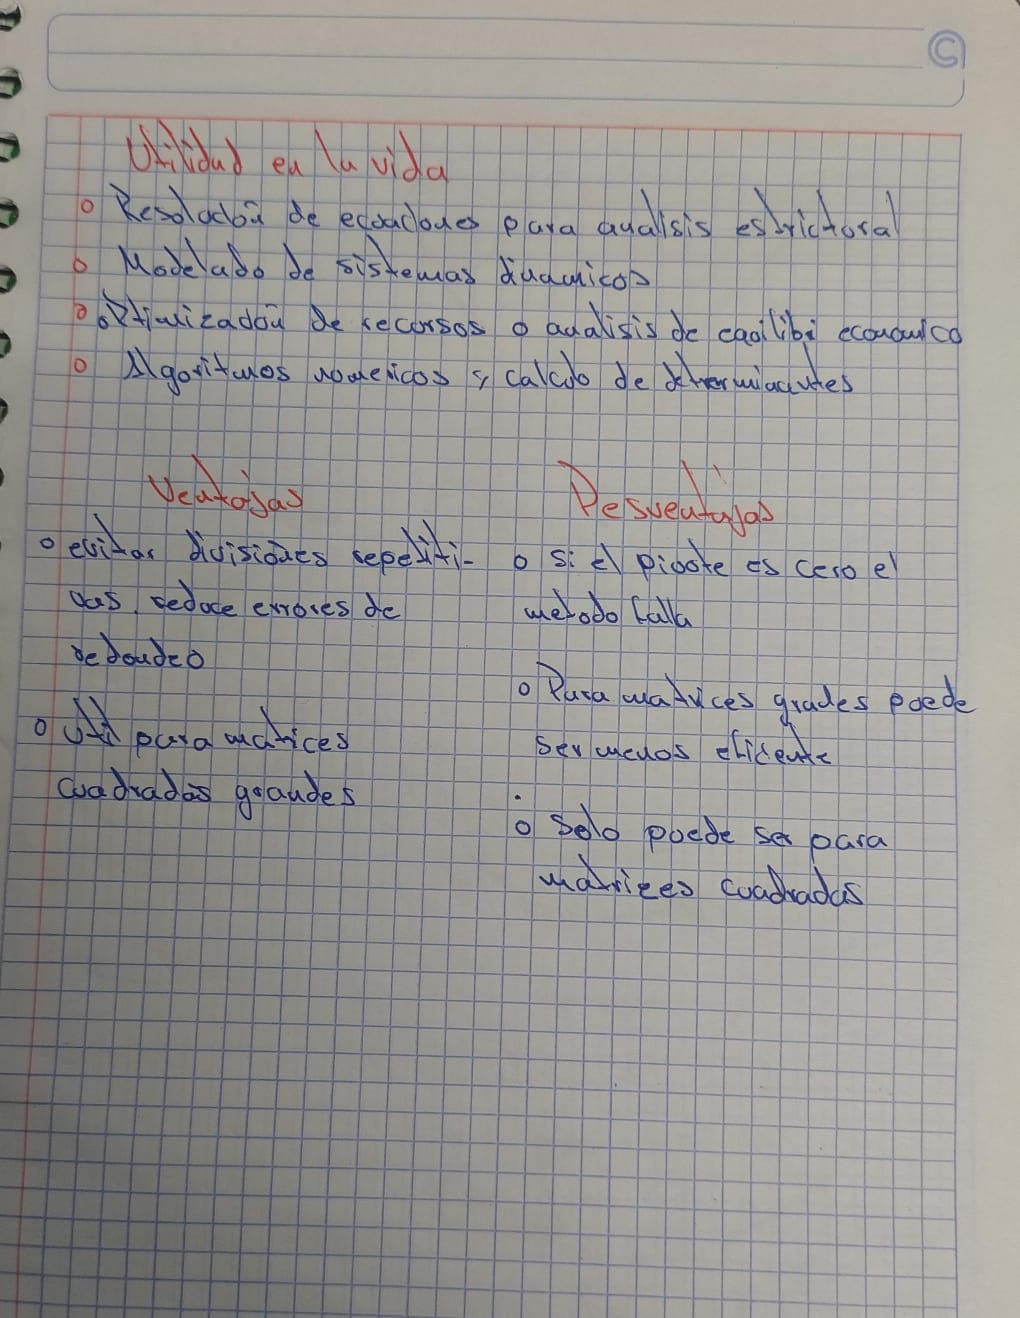 C
Utilidad en la vida
o Resolución de ecuaciones para analisis estrictoral
o Modelado de sistemas dinamicos
o Optimización de recursos o analisis de equilibi economico
o Algoritmos numericos y calculo de determinantes
Ventajas
o evitar divisiones repetiti-
vas, reduce errores de
redondeo
o Util para matrices
cuadradas grandes
Desventajas
o Si el pivote es cero el
metodo falla
o Para matrices grades puede
ser menos eficiente
o Solo puede ser para
matrices cuadradas